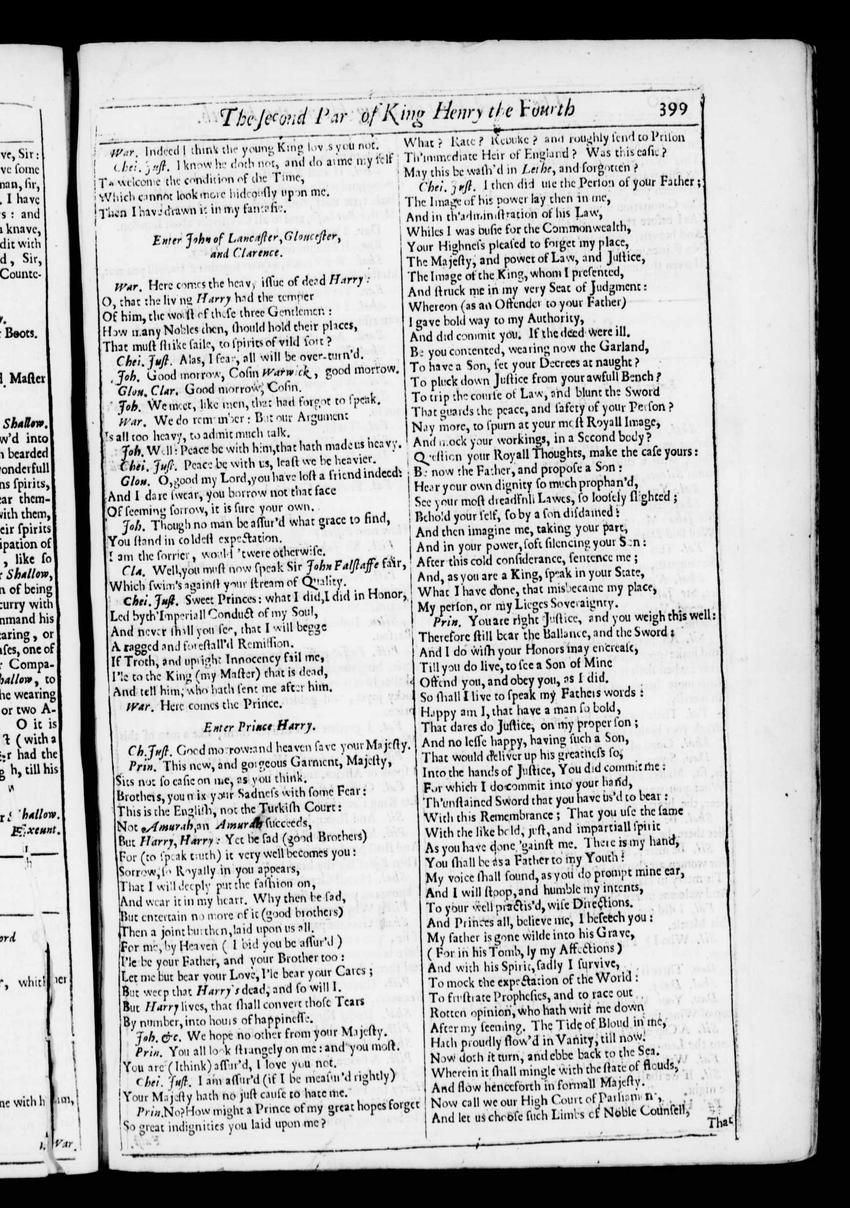 ve, Sir:
ve some
man, sir,
. I have
s: and
a knave,
dit with
d, Sir,
Counte-
Boots.
Master
Shallow.
w'd into
bearded
onderfull
ns spirits,
ear them-
with them,
eir spirits
ipation of
, like so
Shallow,
n of being
curry with
mmand his
earing, or
ases, one of
Compa-
hallow, to
he wearing
or two A-
O it is
(with a
had the
h, till his
hallow.
Exeunt.
ord
War.
The second Par of King Henry the Fourth 399
War. Indeed I think the young King loves you not.
Chei. Just. I know he doth not, and do arme my self
To welcome the condition of the Time,
Which cannot look more hideously upon me.
Then I have drawn it in my fantasie.
Enter John of Lancaster, Gloncester,
and Clarence.
War. Here comes the heavy issue of dead Harry:
O, that the living Harry had the temper
Of him, the worst of these three Gentlemen:
How many Nobles then, should hold their places,
That must strike saile, to spirits of vild sort?
Chei. Just. Alas, I fear, all will be over-turn'd.
Joh. Good morrow, Cosin Warwick, good morrow.
Glon. Clar. Good morrow, Cosin.
Joh. We meet, like men, that had forgot to speak.
War. We do remember: But our Argument
Is all too heavy, to admit much talk.
Joh. Well: Peace be with him, that hath made us heavy.
Chei. Just. Peace be with us, least we be heavier.
Glon. O, good my Lord, you have lost a friend indeed:
And I dare swear, you borrow not that face
Of seeming sorrow, it is sure your own.
Joh. Though no man be assur'd what grace to find,
You stand in coldest expectation.
I am the sorrier, would 'twere otherwise.
Cla. Well, you must now speak Sir John Falstaffe fair,
Which swim's against your stream of Quality.
Chei. Just. Sweet Princes: what I did, I did in Honor,
Led byth'Imperiall Conduct of my Soul,
And never shall you see, that I will begge
A ragged and forestall'd Remission.
If Troth, and upright Innocency fail me,
I'le to the King (my Master) that is dead,
And tell him, who hath sent me after him.
War. Here comes the Prince.
Enter Prince Harry.
Ch. Just. Good morrow: and heaven save your Majesty.
Prin. This new, and gorgeous Garment, Majesty,
Sits not so easie on me, as you think.
Brothers, you mix your Sadness with some Fear:
This is the English, not the Turkish Court:
Not Amurah, an Amurah succeeds,
But Harry, Harry: Yet be sad (good Brothers)
For (to speak truth) it very well becomes you:
Sorrow, so Royally in you appears,
That I will deeply put the fashion on,
And wear it in my heart. Why then be sad,
But entertain no more of it (good brothers)
Then a joint burthen, laid upon us all.
For me, by Heaven (I bid you be assur'd)
I'le be your Father, and your Brother too:
Let me but bear your Love, I'le bear your Cares;
But weep that Harry's dead, and so will I.
But Harry lives, that shall convert those Tears
By number, into hours of happinesse.
Joh. &c. We hope no other from your Majesty.
Prin. You all look strangely on me: and you most.
You are (I think) assur'd, I love you not.
Chei. Just. I am assur'd (if I be measur'd rightly)
Your Majesty hath no just cause to hate me.
Prin. No? How might a Prince of my great hopes forget
So great indignities you laid upon me?
What? Rate? Rebuke? and roughly send to Prison
Th'immediate Heir of England? Was this easie?
May this be wash'd in Lethe, and forgotten?
Chei. just. I then did use the Person of your Father;
The Image of his power lay then in me,
And in th'administration of his Law,
Whiles I was busie for the Commonwealth,
Your Highness pleased to forget my place,
The Majesty, and power of Law, and Justice,
The Image of the King, whom I presented,
And struck me in my very Seat of Judgment:
Whereon (as an Offender to your Father)
I gave bold way to my Authority,
And did commit you. If the deed were ill.
Be you contented, wearing now the Garland,
To have a Son, set your Decrees at naught?
To pluck down Justice from your awfull Bench?
To trip the course of Law, and blunt the Sword
That guards the peace, and safety of your Person?
Nay more, to spurn at your most Royall Image,
And mock your workings, in a Second body?
Question your Royall Thoughts, make the case yours:
Be now the Father, and propose a Son:
Hear your own dignity so much prophan'd,
See your most dreadfull Lawes, so loosely slighted;
Behold your self, so by a son disdained:
And then imagine me, taking your part,
And in your power, soft silencing your Son:
After this cold considerance, sentence me;
And, as you are a King, speak in your State,
What I have done, that misbecame my place,
My person, or my Lieges Soveraignty.
Prin. You are right Justice, and you weigh this well:
Therefore still bear the Ballance, and the Sword:
And I do wish your Honors may encrease,
Till you do live, to see a Son of Mine
Offend you, and obey you, as I did.
So shall I live to speak my Fathers words:
Happy am I, that have a man so bold,
That dares do Justice, on my proper son;
And no lesse happy, having such a Son,
That would deliver up his greatness so,
Into the hands of Justice, You did commit me:
For which I do commit into your hand,
Th'unstained Sword that you have us'd to bear:
With this Remembrance; That you use the same
With the like bold, just, and impartiall spirit
As you have done 'gainst me. There is my hand,
You shall be as a Father to my Youth:
My voice shall sound, as you do prompt mine ear,
And I will stoop, and humble my intents,
To your well practis'd, wise Directions.
And Princes all, believe me, I beseech you:
My father is gone wilde into his Grave,
(For in his Tomb, ly my Affections)
And with his Spirit, sadly I survive,
To mock the expectation of the World:
To frustrate Prophesies, and to race out
Rotten opinion, who hath writ me down
After my seeming. The Tide of Bloud in me,
Hath proudly flow'd in Vanity, till now.
Now doth it turn, and ebbe back to the Sea.
Wherein it shall mingle with the state of flouds,
And flow henceforth in formall Majesty.
Now call we our High Court of Parliament,
And let us choose such Limbs of Noble Counsell,
That